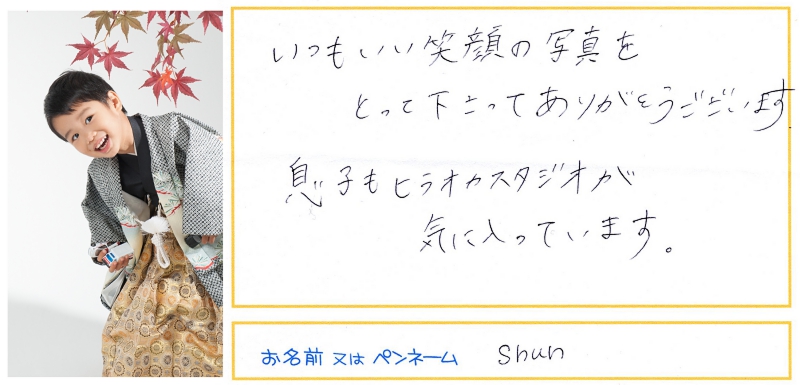 いつもいい笑顔の写真を
とって下さってありがとうございます
息子もヒラオカスタジオが
気に入っています。
お名前 又は ペンネーム Shun